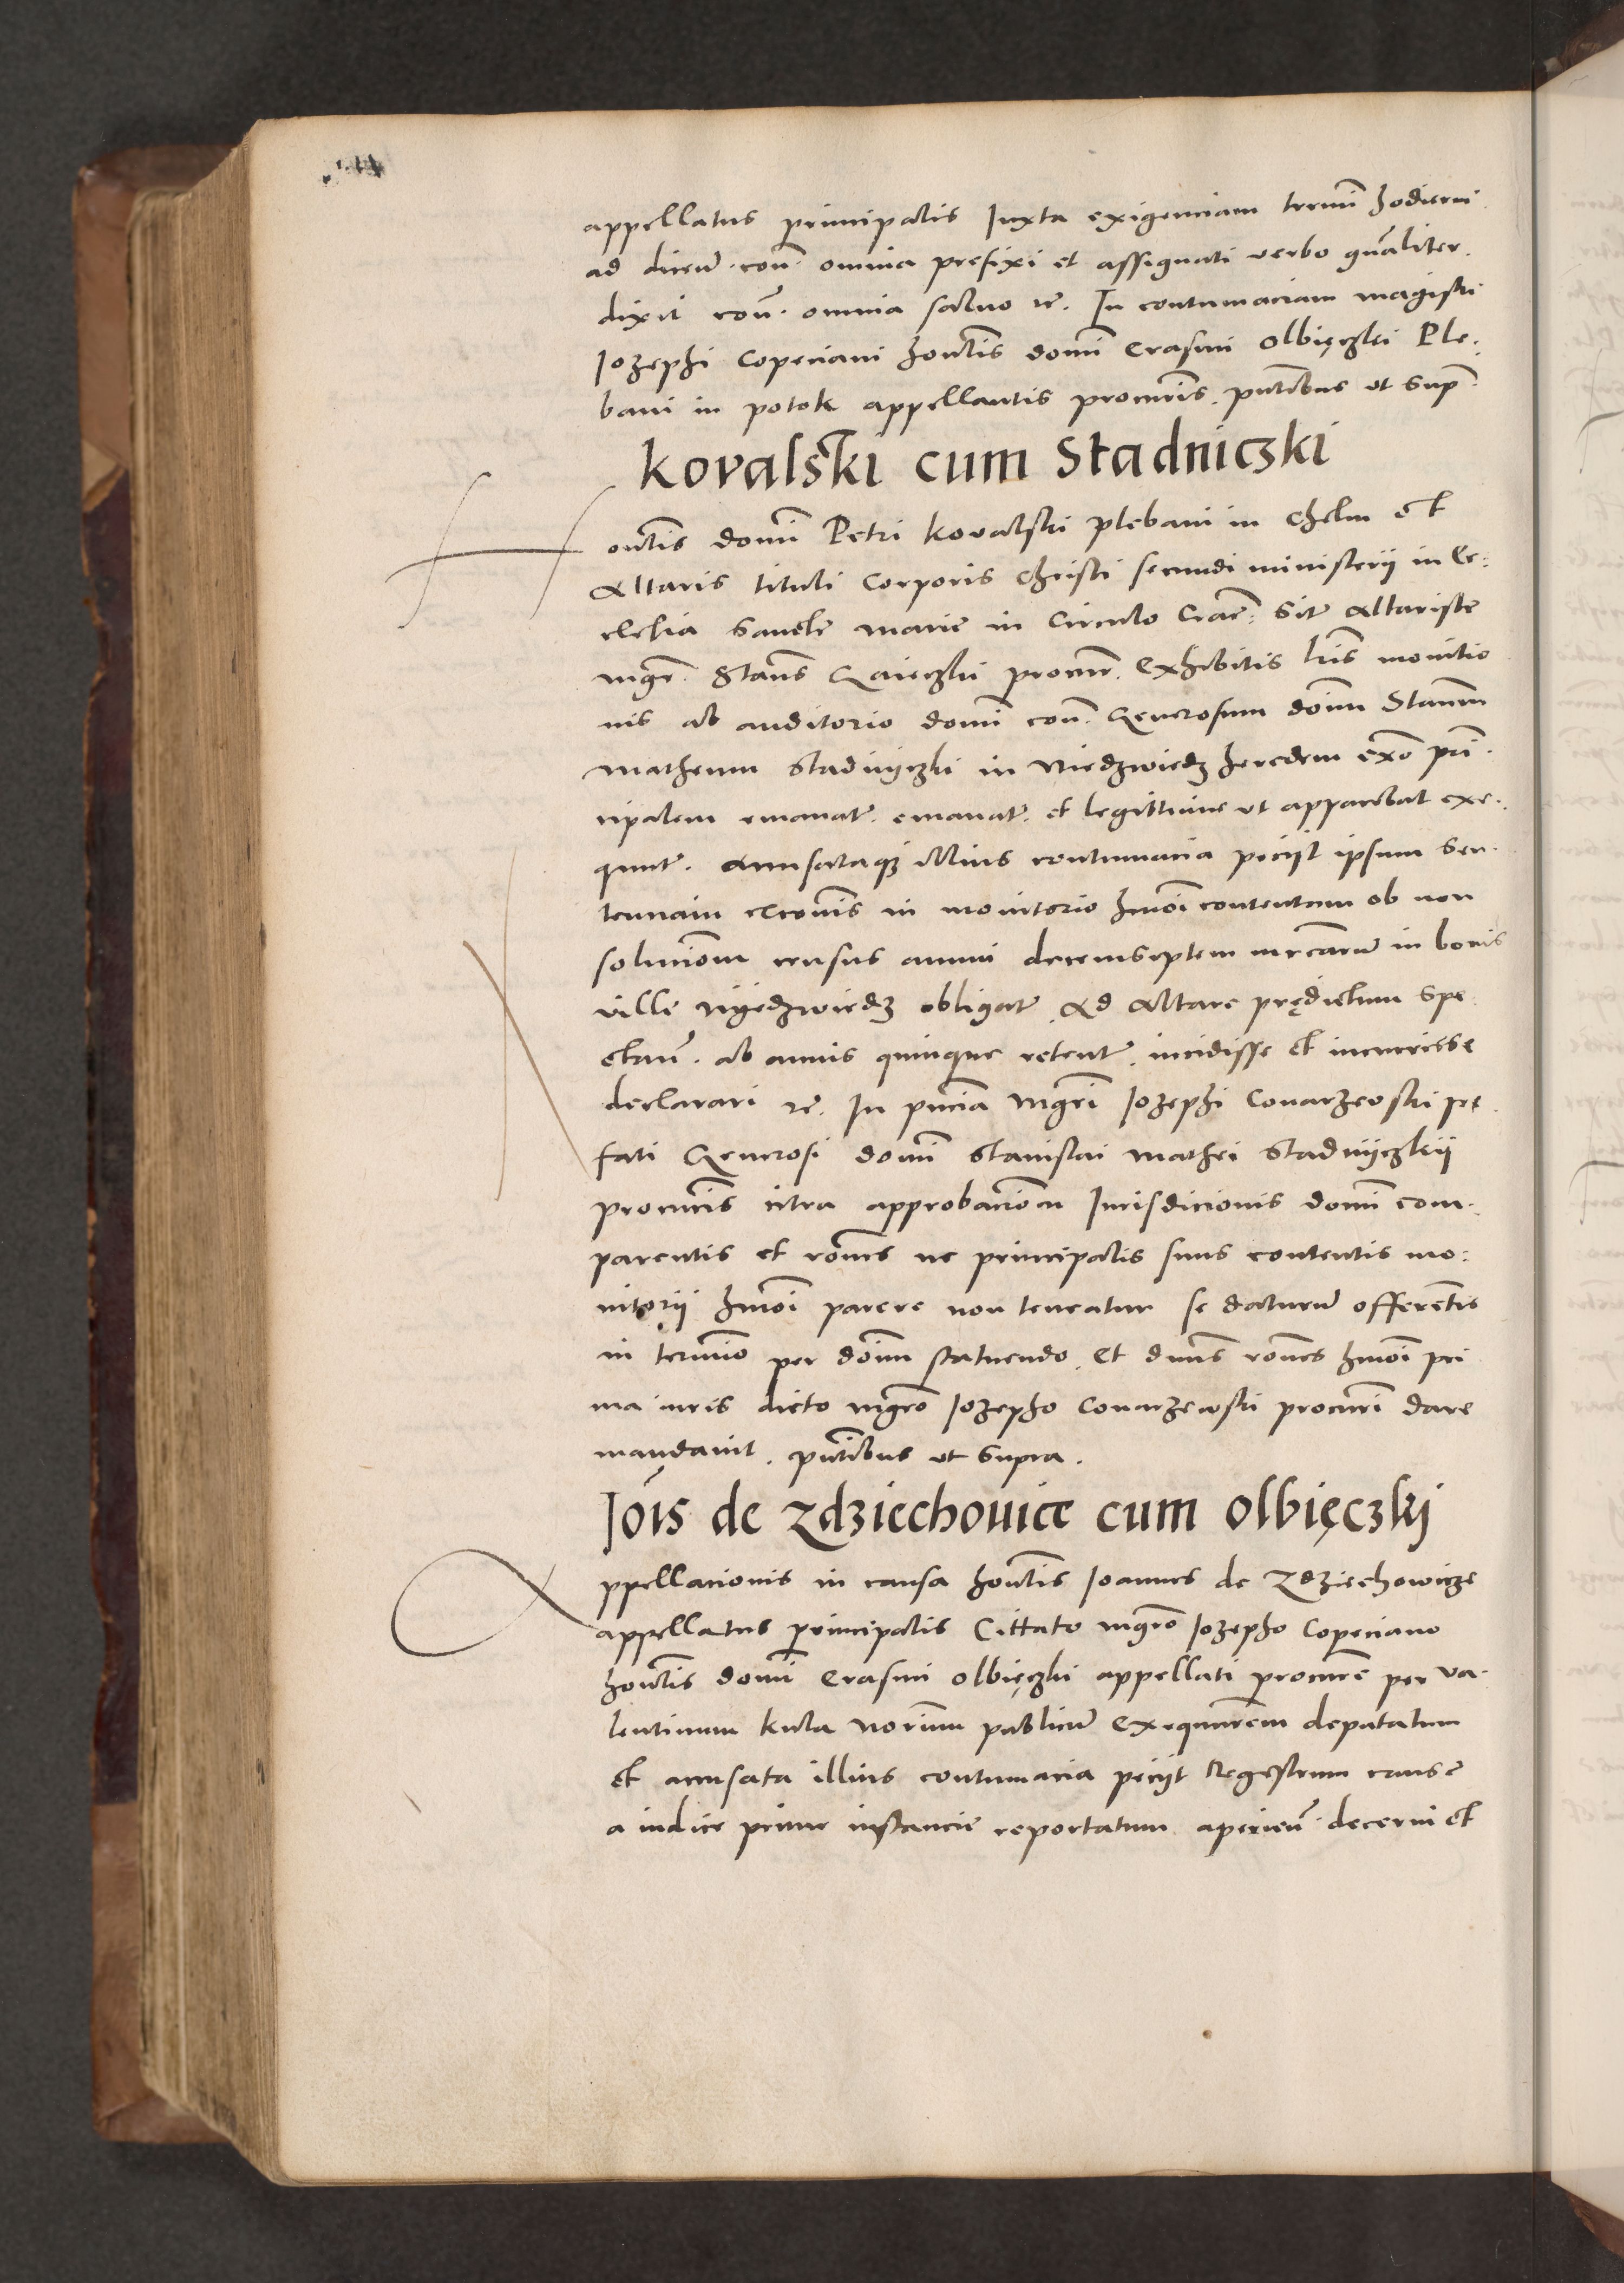 appellatus principalis Juxta exigenciam termi͂ hodierni
ad dicen͂d. con͂. omnia prefixi et assignati verbo gn͂aliter.
dixit con͂. omnia saluo rc͂. In contumaciam magistri
Jozephi Copeciani hon͂tis domi͂ Erasmi Olbięczki Ple:
bani in potok appellantis procur͂is. pn͂tibus ut sup͂.
Kovalski cum Stadniczki
Hon͂tis domi͂ Petri Kovalski plebani in Chelm et
Altaris tituli Corporis Christi secundi ministerij in Ec:
clesia Sanctę marie in Circulo Crac͂: Sitę Altaristę
mgr͂. Stan͂s procur͂. Exhibitis lr͂is monitio
nis ab auditorio domi͂ con͂. Generosum dom͂ Stan͂m
matheum Stadnÿczki in Niedzwiedz heredem ex͂o pri͂.
cipalem emanat͂. emanat͂. et legittime ut apparebat exe.
quut͂. Accusataq͂ illius contumacia peciit ipsum Sen.
tenciam exco͂nis in monitorio hm͂oi contentam ob non
soluciom͂ census annui decemseptem mrcaru͂ in bonis
ville Nÿedzwiedz obligat͂. Ad Altare prędictum Spe
ctan͂. ab annis quinque retent͂. incidisse et incurrisse
declarari rc͂. In pn͂cia mgr͂i Jozephi Covarzewski prę
fati Generosi domi͂ Stanislai mathei Stadnÿczkij
procur͂is citra approbaciom͂ Jurisdicionis domi͂ com.
parentis et ron͂es ne principalis suus contentis mo:
nitorij hm͂oi parere non teneatur se daturu͂ offeren͂tis
in termi͂o per dom͂ statuendo. Et dn͂us ron͂es hm͂oi pri
ma iuris dicto mgr͂o Jozepho Covarzewski procur͂i dare
mandavit. pn͂tibus ut Supra.
Joi͂s de Zdziechovice cum Olbięczkj
Appellacionis in causa hon͂tis Joannes de Zdziechowicze
appellatus principalis Cittato mgr͂o Jozepho Copeciano
hon͂tis domi͂ Erasmi Olbięczki appellati procur͂e per Va.
lentinum Kula Nor͂ium publicu͂ Exequut͂rem deputatum
et accusata illius contumacia peciit Regestrum causę
a iudice primę instancie reportatum aperien͂. decerni et